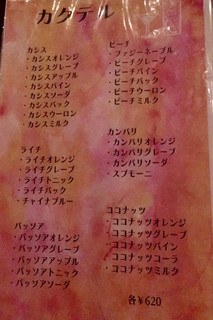 カクテル
カシス
・カシスオレンジ
・カシスグレープ
・カシスアップル
・カシスパイン
・カシスソーダ
・カシスバック
・カシスウーロン
・カシスミルク
ライチ
・ライチオレンジ
・ライチグレープ
・ライチトニック
・ライチバック
・チャイナブルー
パッソア
・パッソアオレンジ
・パッソアグレープ
・パッソアアップル
・パッソアトニック
・パッソアソーダ
ピーチ
・ファジーネーブル
・ピーチグレープ
・ピーチパイン
・ピーチバック
・ピーチウーロン
・ピーチミルク
カンパリ
・カンパリオレンジ
・カンパリグレープ
・カンパリソーダ
・スプモーニ
ココナッツ
・ココナッツオレンジ
・ココナッツグレープ
・ココナッツパイン
・ココナッツコーラ
・ココナッツミルク
各¥620